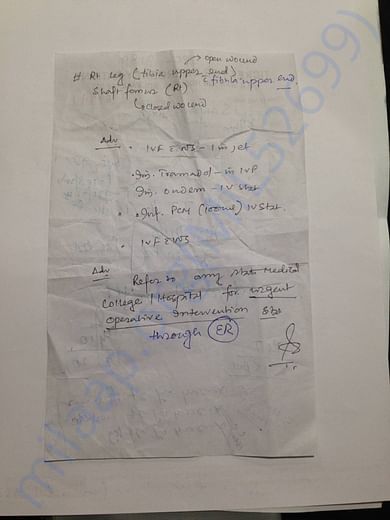 → open wound
# Rt leg (tibia upper end)
& fibula upper end.
Shaft femur (Rt)
(→ closed wound
Adv • IVF E NS - I in jet
• Inj. Tramadol - in IVP
Inj. ondem - IV stat
• Inf. PCM (100ml) IV stat.
• IVF E NS
Adv
Refer to any state Medical
College / Hospital for urgent
operative Intervention
through ER
milaap.org
52699)